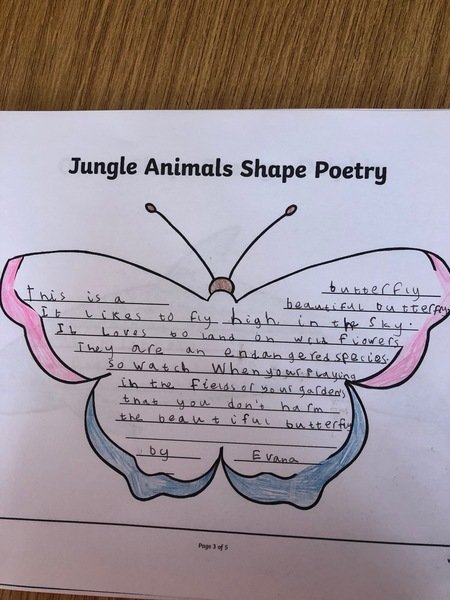 Jungle Animals Shape Poetry
butterfly
This is a beautiful butterfly
It likes to fly high in the sky.
It loves to land on wild flowers
They are an endangered species.
So watch When your Playing
in the fields or your gardens
that you don't harm
the beautiful butterfly
by Evana
Page 3 of 5